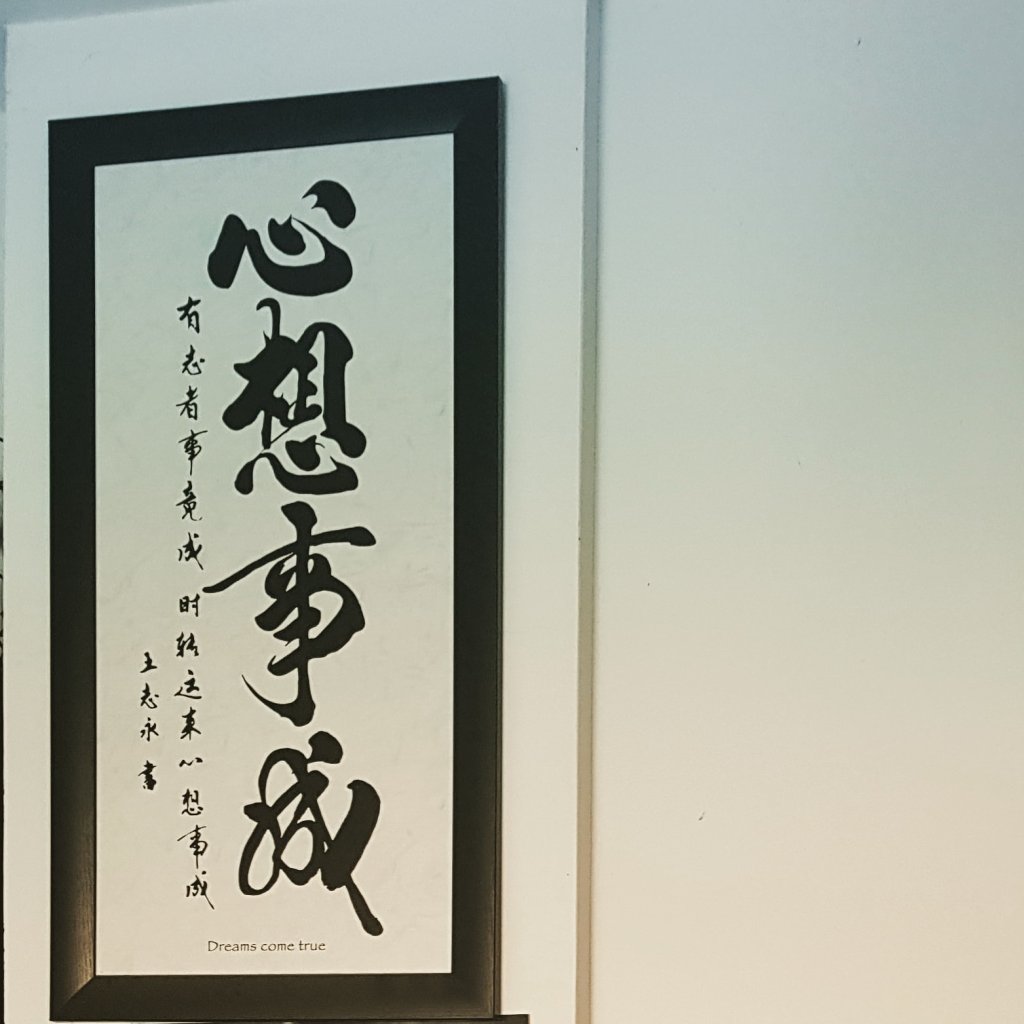 心想事成
有志者事竟成 时转运来心想事成
王志永書
Dreams come true